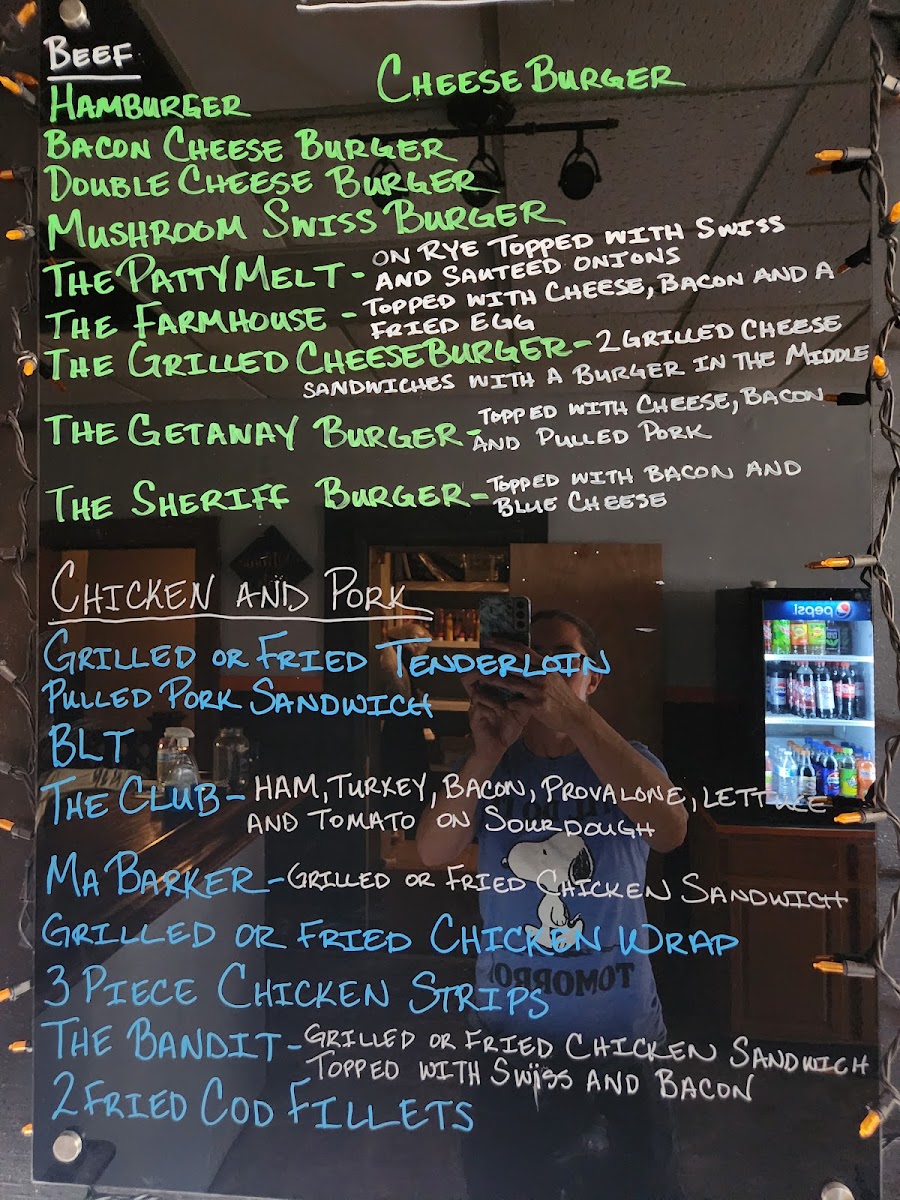 BEEF
HAMBURGER CHEESE BURGER
BACON CHEESE BURGER
DOUBLE CHEESE BURGER
MUSHROOM SWISS BURGER
THE PATTY MELT - ON RYE TOPPED WITH SWISS
AND SAUTEED ONIONS
THE FARMHOUSE - TOPPED WITH CHEESE, BACON AND A
FRIED EGG
THE GRILLED CHEESE BURGER - 2 GRILLED CHEESE
SANDWICHES WITH A BURGER IN THE MIDDLE
THE GETAWAY BURGER - TOPPED WITH CHEESE, BACON
AND PULLED PORK
THE SHERIFF BURGER - TOPPED WITH BACON AND
BLUE CHEESE
CHICKEN AND PORK
GRILLED OR FRIED TENDERLOIN
PULLED PORK SANDWICH
BLT
THE CLUB - HAM, TURKEY, BACON, PROVALONE, LETTUCE
AND TOMATO ON SOURDOUGH
MA BARKER - GRILLED OR FRIED CHICKEN SANDWICH
GRILLED OR FRIED CHICKEN WRAP
3 PIECE CHICKEN STRIPS
THE BANDIT - GRILLED OR FRIED CHICKEN SANDWICH
TOPPED WITH SWISS AND BACON
2 FRIED COD FILLETS
pepsi
TOMORRO